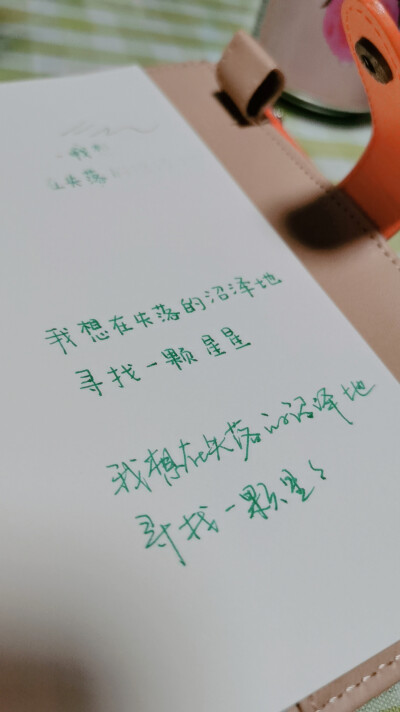 在失落
我想在失落的沼泽地
寻找一颗星星
我想在失落的沼泽地
寻找一颗星々